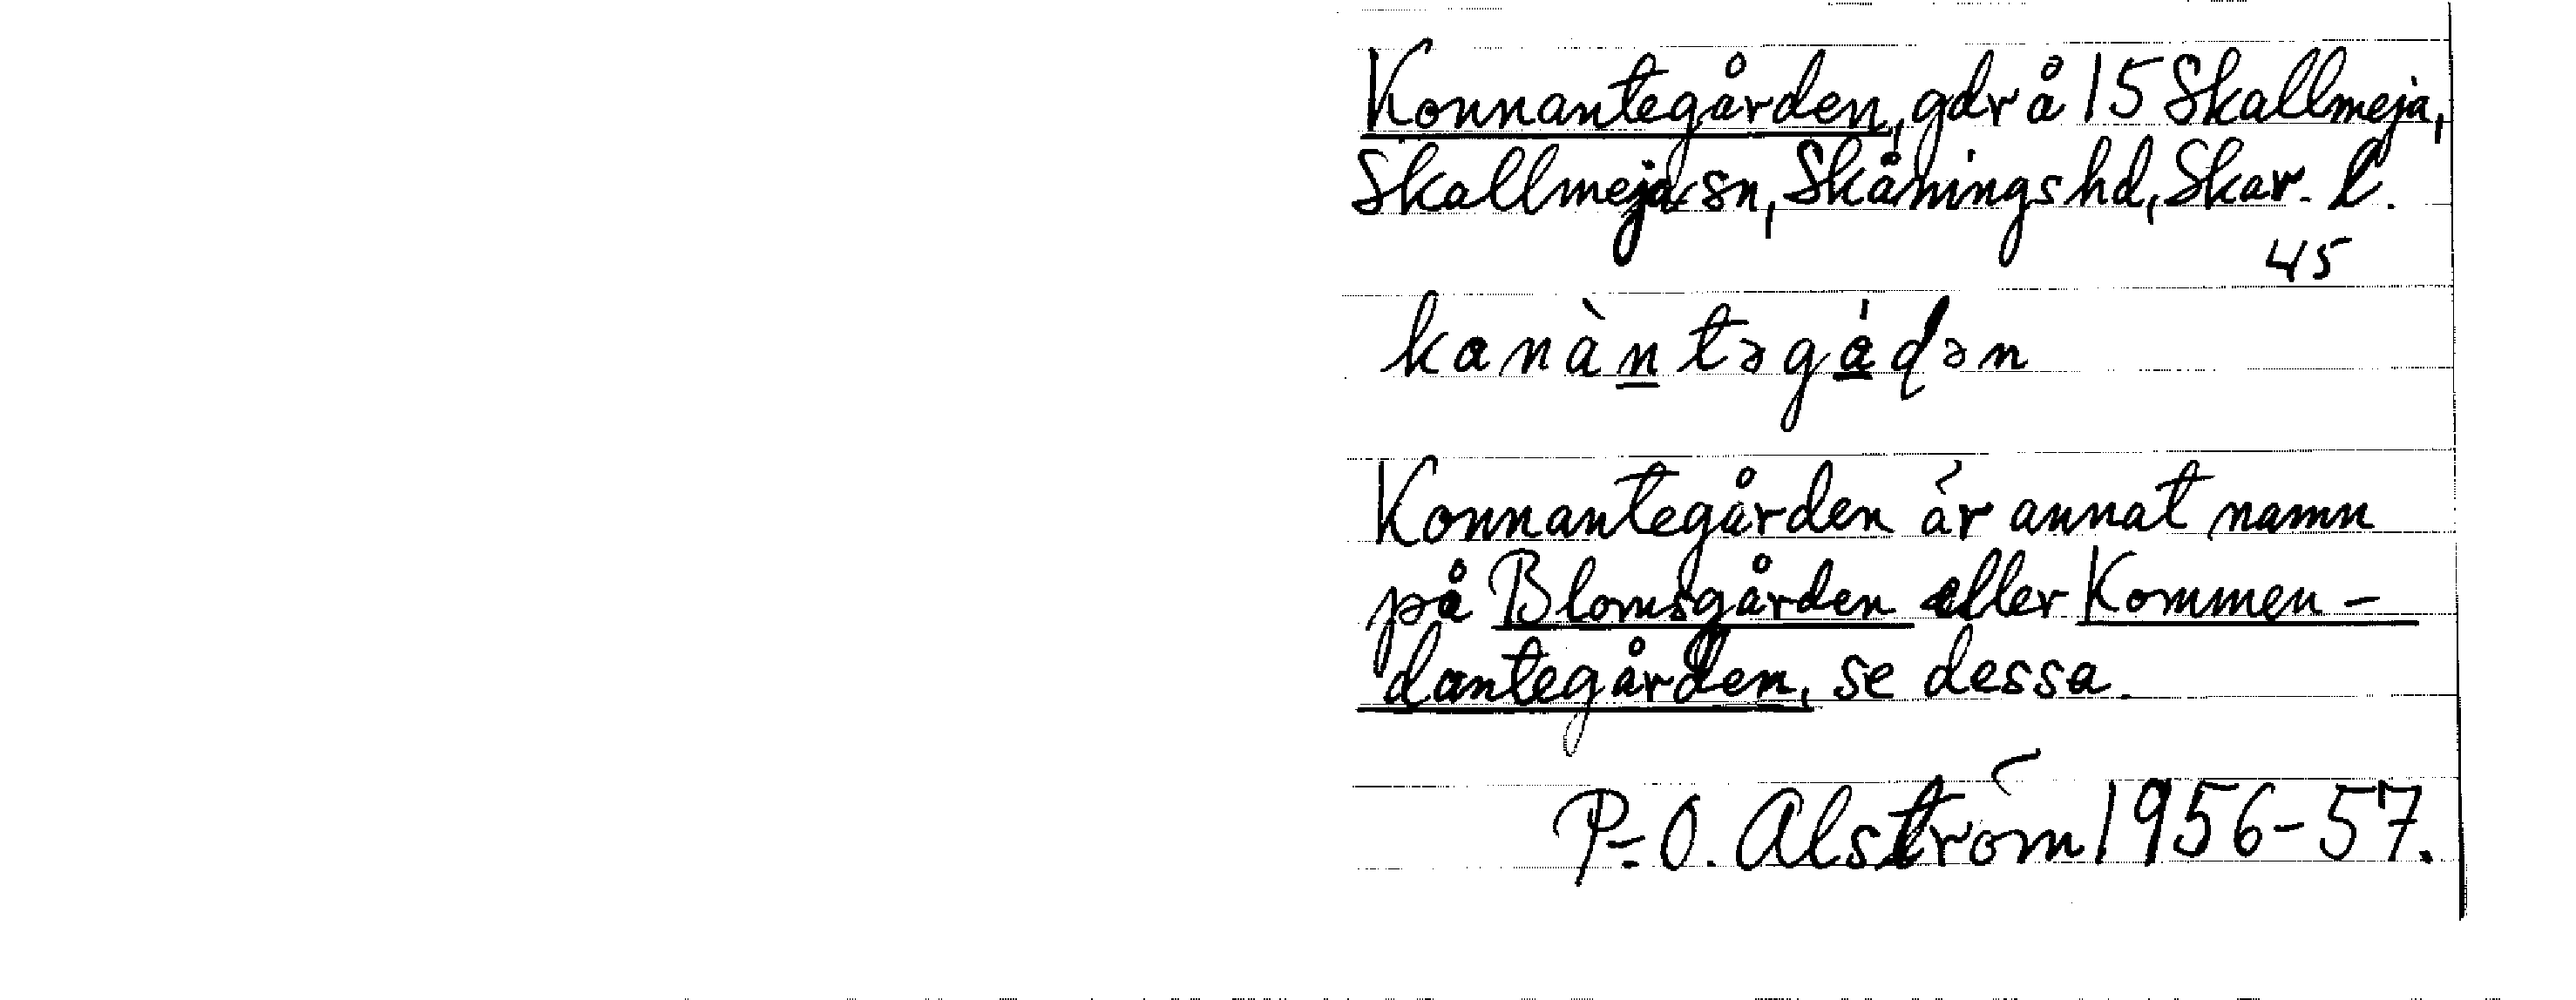 Konnantegården, gdr å 15 Skallmeja,
Skallmeja sn, Skånings hd, Skar. l.
45
kanàntəgádən
Konnantegården är annat namn
på Blomsgården eller Kommen-
dantegården, se dessa.
P-O. Alström 1956-57.